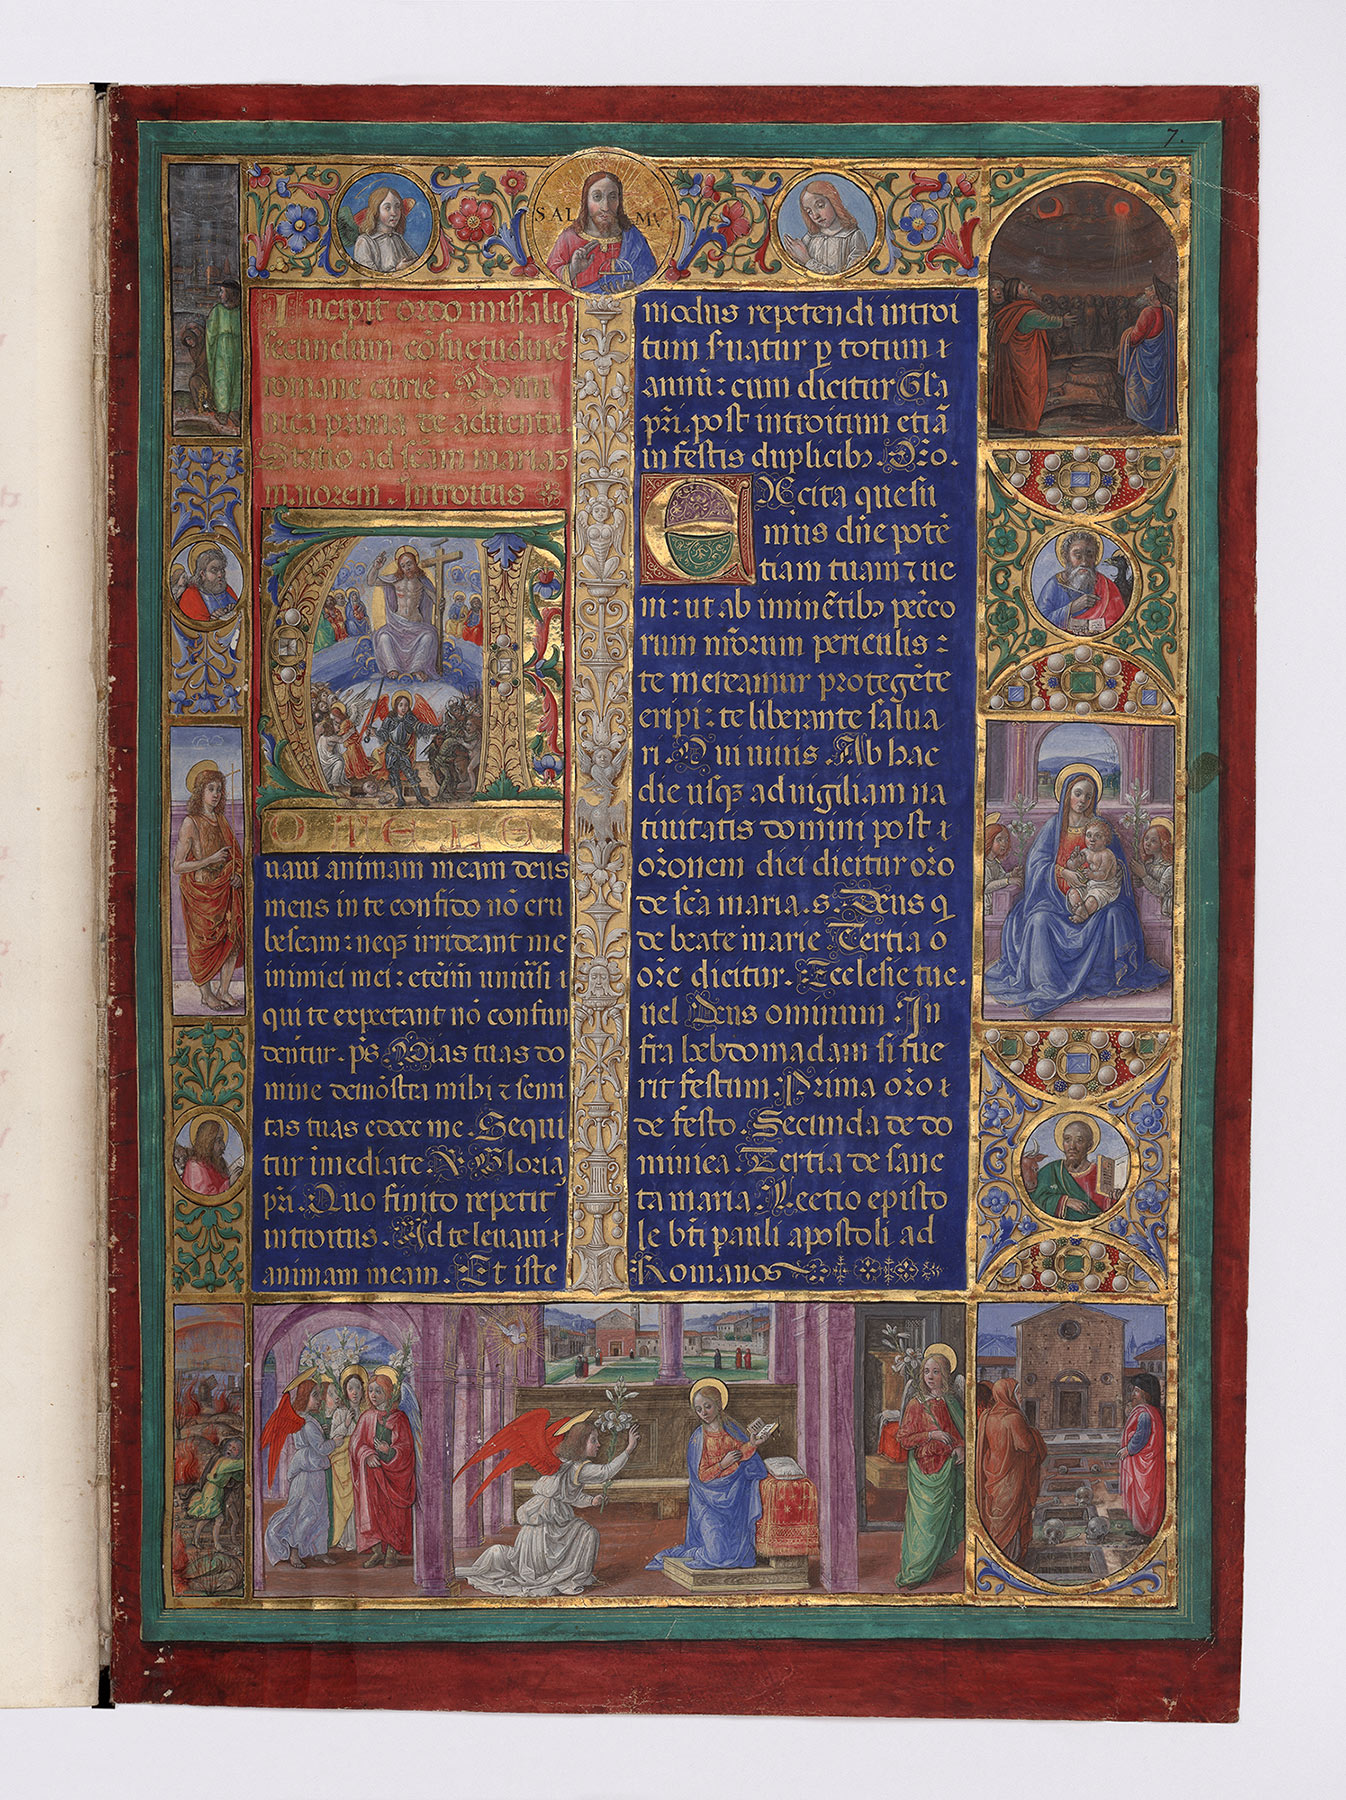 7.
SAL MV
Incipit ordo missalis
secundum cōsuetudinē
romane curie. Domi
nica prima de aduentu.
Statio ad scām mariaz
maiorem. Introitus
AD TELEUA
uaui animam meam deus
meus in te confido nō eru
bescam: neqꝫ irrideant me
inimici mei: etēim uniūsi
qui te expectant nō confun
dentur. ps̄ Vias tuas do
mine demōstra mihi ⁊ semi
tas tuas edoce me. Sequi
tur īmediate. ℣ Gloria
pr̄i. Quo finito repetit
introitus. Ad te leuaui
animam meam. Et iste
modus repetendi introi
tum s̄uatur p totum
annū: cum dicitur Gl̄a
pr̄i. post introitum etiā
in festis duplicibꝫ. Or̄o.
EXcita quesu
mus dn̄e potē
tiam tuam ⁊ ue
ni: ut ab iminētibꝫ pecc̄o
rum nr̄orum periculis:
te mereamur protegēte
eripi: te liberante salua
ri. Qui uiuis. Ab hac
die usqꝫ ad uigiliam na
tiuitatis domini post
or̄onem diei dicitur or̄o
de scā maria. s. Deus q
de beate marie Tertia o
or̄e dicitur. Ecclesie tue.
uel Deus omnium In
fra hebdomadam si fue
rit festum: Prima or̄o
de festo. Secunda de do
minica. Tertia de sanc
ta maria. Lectio episto
le bt̄i pauli apostoli ad
Romanos